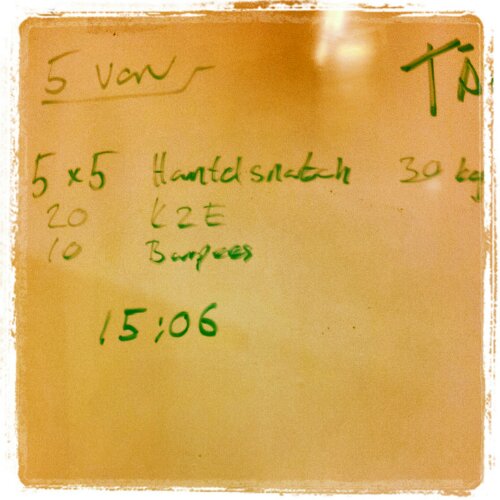 5 varv TÄ
5 x 5 Hantelsnatch 30 kg
20 K2E
10 Burpees
15:06